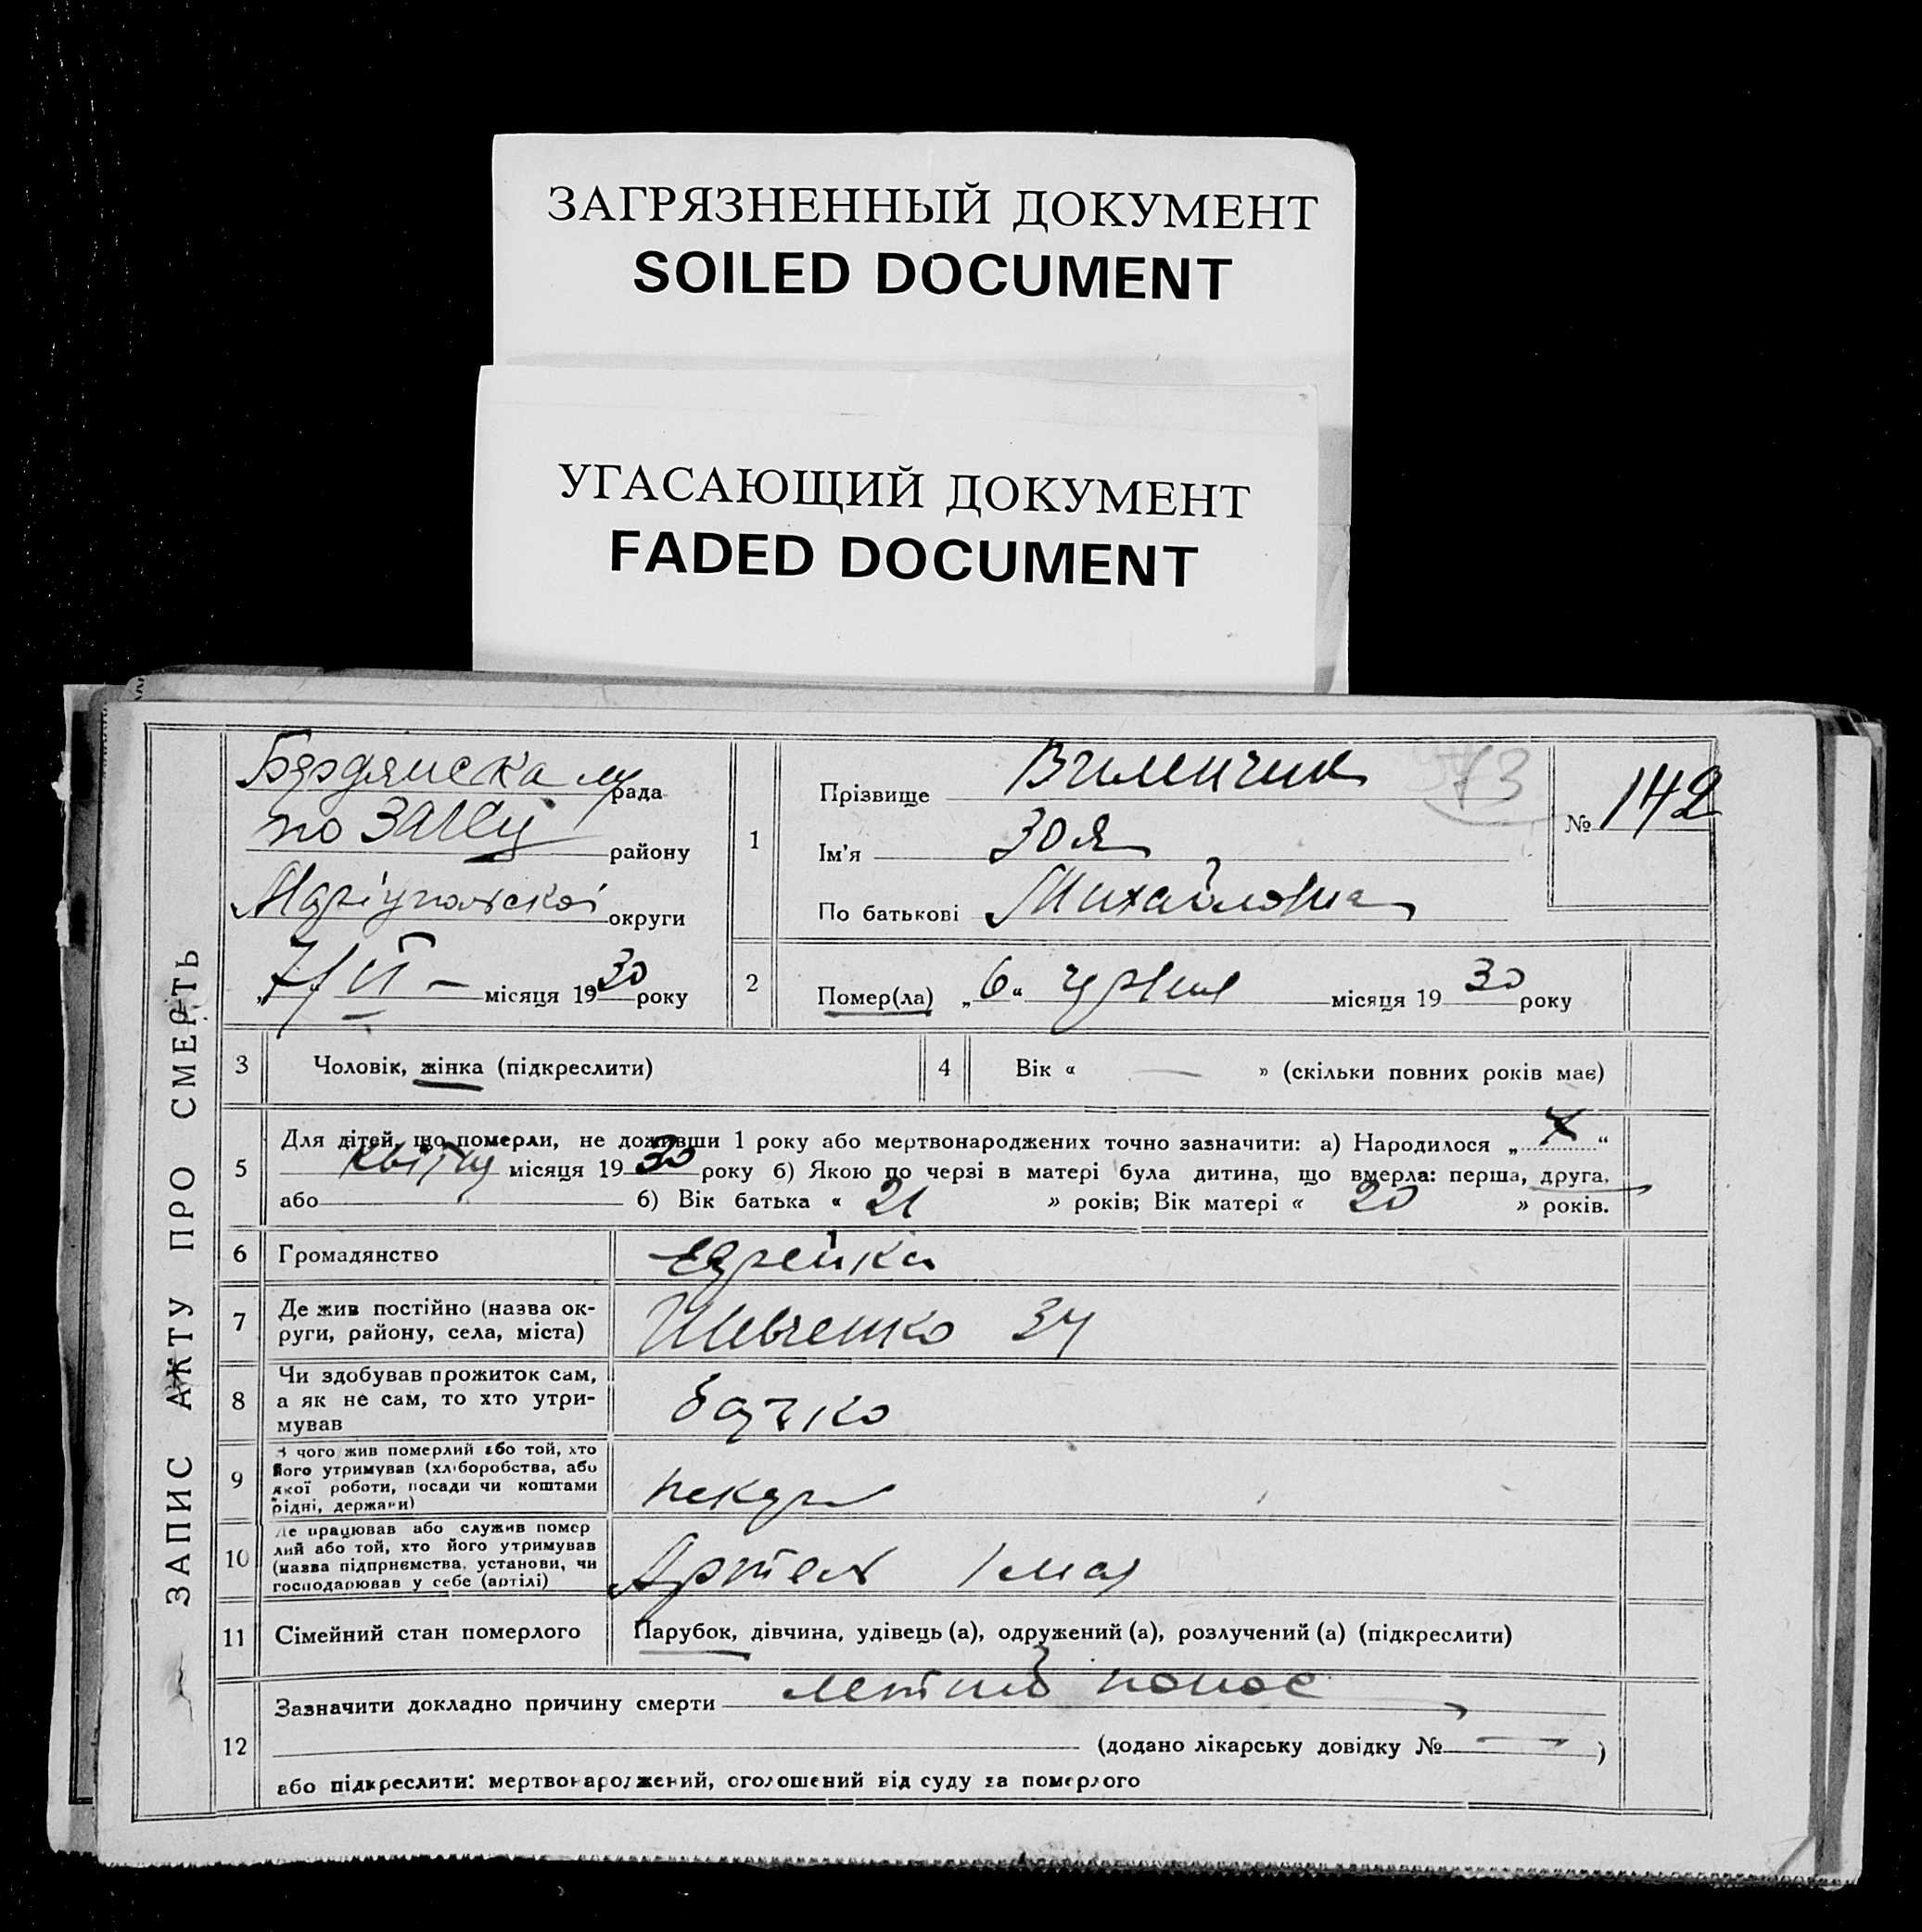 ЗАГРЯЗНЕННЫЙ ДОКУМЕНТ
SOILED DOCUMENT
УГАСАЮЩИЙ ДОКУМЕНТ
FADED DOCUMENT
ЗАПИС АКТУ ПРО СМЕРТЬ
Бердянська м/рада
по ЗАГСу району
Маріупольської округи
„7“ VI – місяця 1930 року
1
Прізвище Виленчик
Ім'я Зоя
По батькові Михайловна
№ 142
2
Помер(ла) „6“ червня місяця 1930 року
3 Чоловік, жінка (підкреслити)
4 Вік « — » (скільки повних років має)
5 Для дітей, що померли, не доживши 1 року або мертвонароджених точно зазначити: а) Народилося „ “
квітня місяця 1930 року б) Якою по черзі в матері була дитина, що вмерла: перша, друга,
або б) Вік батька « 21 » років; Вік матері « 20 » років.
6 Громадянство Еврейка
7 Де жив постійно (назва ок-
руги, району, села, міста) Шевченко 34
8 Чи здобував прожиток сам,
а як не сам, то хто утри-
мував батько
9 З чого жив померлий або той, хто
його утримував (хліборобства, або
якої роботи, посади чи коштами
рідні, держави) пекар
10 Де працював або служив помер
лий або той, хто його утримував
(назва підприємства, установи, чи
господарював у себе (артілі) Артель 1 мая
11 Сімейний стан померлого Парубок, дівчина, удівець (а), одружений (а), розлучений (а) (підкреслити)
12 Зазначити докладно причину смерти летний понос
(додано лікарську довідку № — )
або підкреслити: мертвонароджений, оголошений від суду за померлого